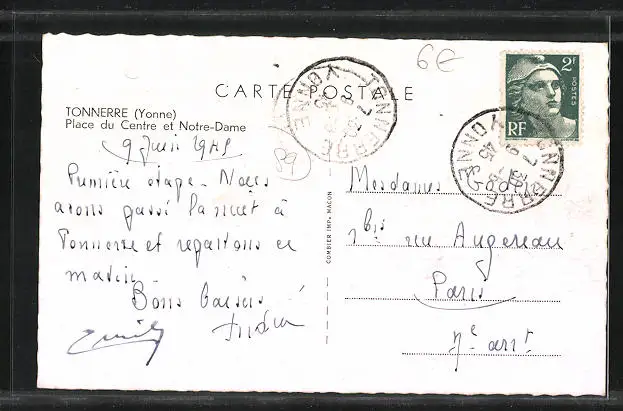 6€
CARTE POSTALE
TONNERRE (Yonne)
Place du Centre et Notre-Dame
9 Juin 1945
89
Première étape. Nous
avons passé la nuit à
Tonnerre et repartons ce
matin
Bons baisers
COMBIER IMP. MACON
TONNERRE
YONNE
2F
POSTES
RF
TONNERRE
YONNE
Mesdames
1bis rue Augereau
Paris
7e arrt